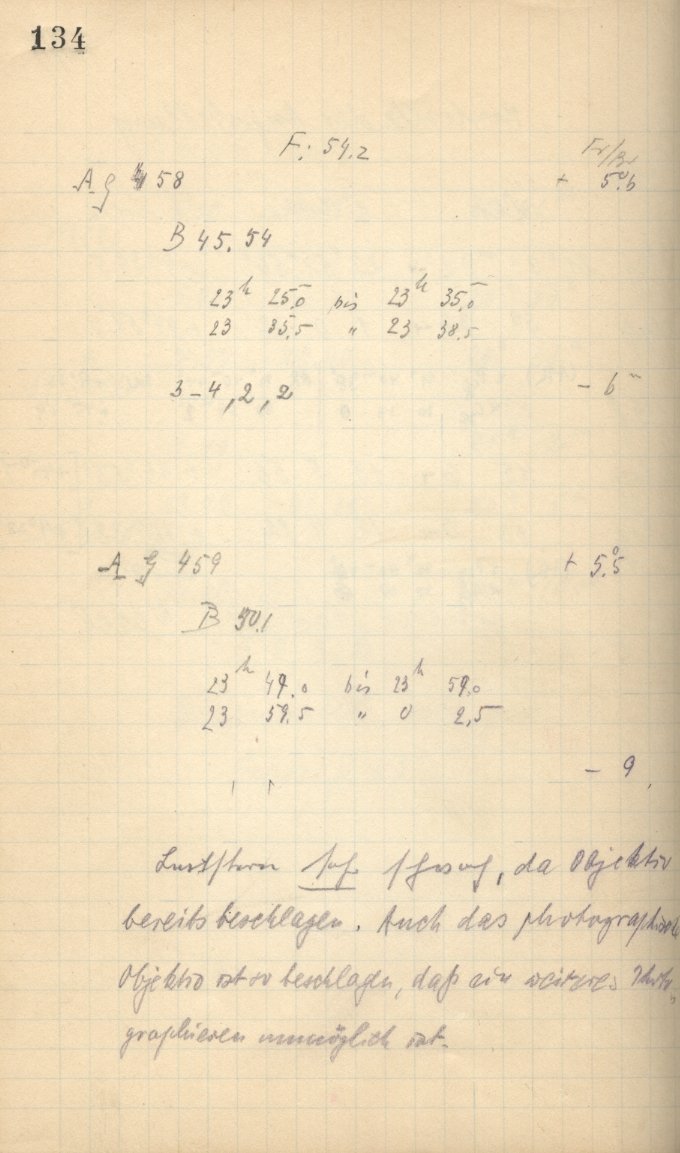 134
F: 54.2 Fr/Br
A G 458 + 5°.6
B 45.54
23h 25.0 bis 23h 35.0
23 35.5 " 23 38.5
3-4, 2, 2 - 6m
A G 459 + 5°.5
B 50.1
23h 49.0 bis 23h 59.0
23 59.5 " 0 2,5
, , - 9
Leitstern sehr schwach, da Objektiv
bereits beschlagen. Auch das photographische
Objektiv ist so beschlagen, daß ein weiteres Photo-
graphieren unmöglich ist.